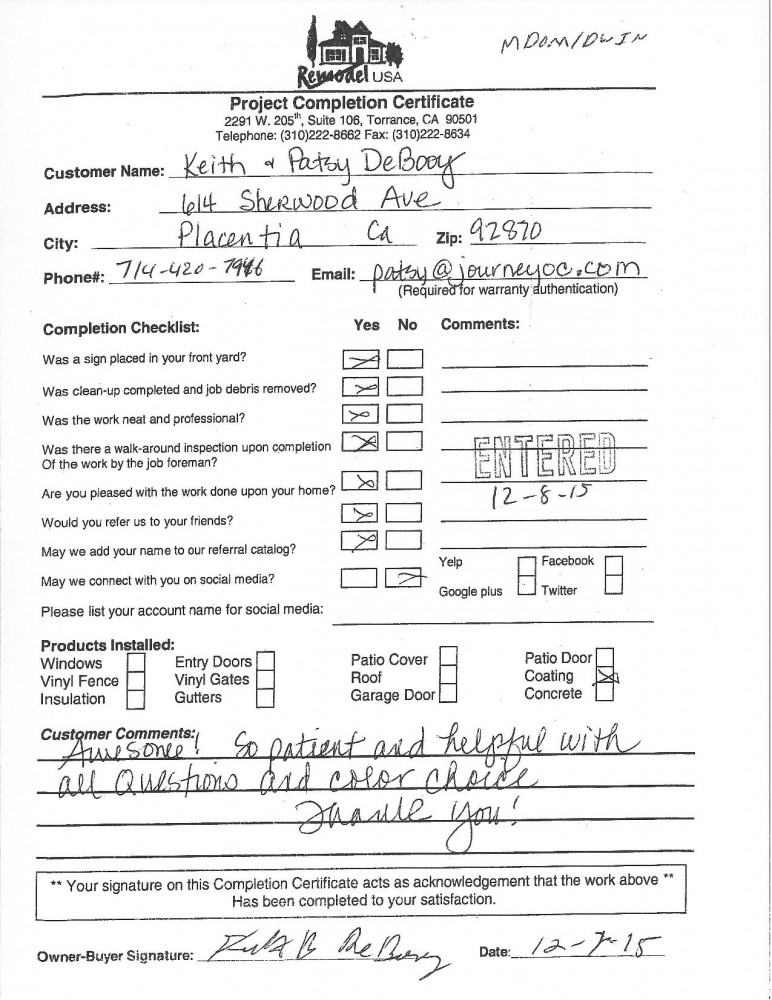 MDOM/DWIN
Remodel USA
Project Completion Certificate
2291 W. 205th, Suite 106, Torrance, CA 90501
Telephone: (310)222-8662 Fax: (310)222-8634
Customer Name: Keith & Patsy DeBooy
Address: 614 Sherwood Ave
City: Placentia Ca Zip: 92870
Phone#: 714-420-7946 Email: patsy@journeyoc.com
(Required for warranty authentication)
Completion Checklist: Yes No Comments:
Was a sign placed in your front yard?
Was clean-up completed and job debris removed?
Was the work neat and professional?
Was there a walk-around inspection upon completion
Of the work by the job foreman?
ENTERED
Are you pleased with the work done upon your home?
12-8-15
Would you refer us to your friends?
May we add your name to our referral catalog?
Yelp Facebook
May we connect with you on social media?
Google plus Twitter
Please list your account name for social media:
Products Installed:
Windows Entry Doors Patio Cover Patio Door
Vinyl Fence Vinyl Gates Roof Coating
Insulation Gutters Garage Door Concrete
Customer Comments:
Awesome! So patient and helpful with
all questions and color choice
Thank you!
** Your signature on this Completion Certificate acts as acknowledgement that the work above **
Has been completed to your satisfaction.
Owner-Buyer Signature: Keith B DeBooy Date: 12-7-15